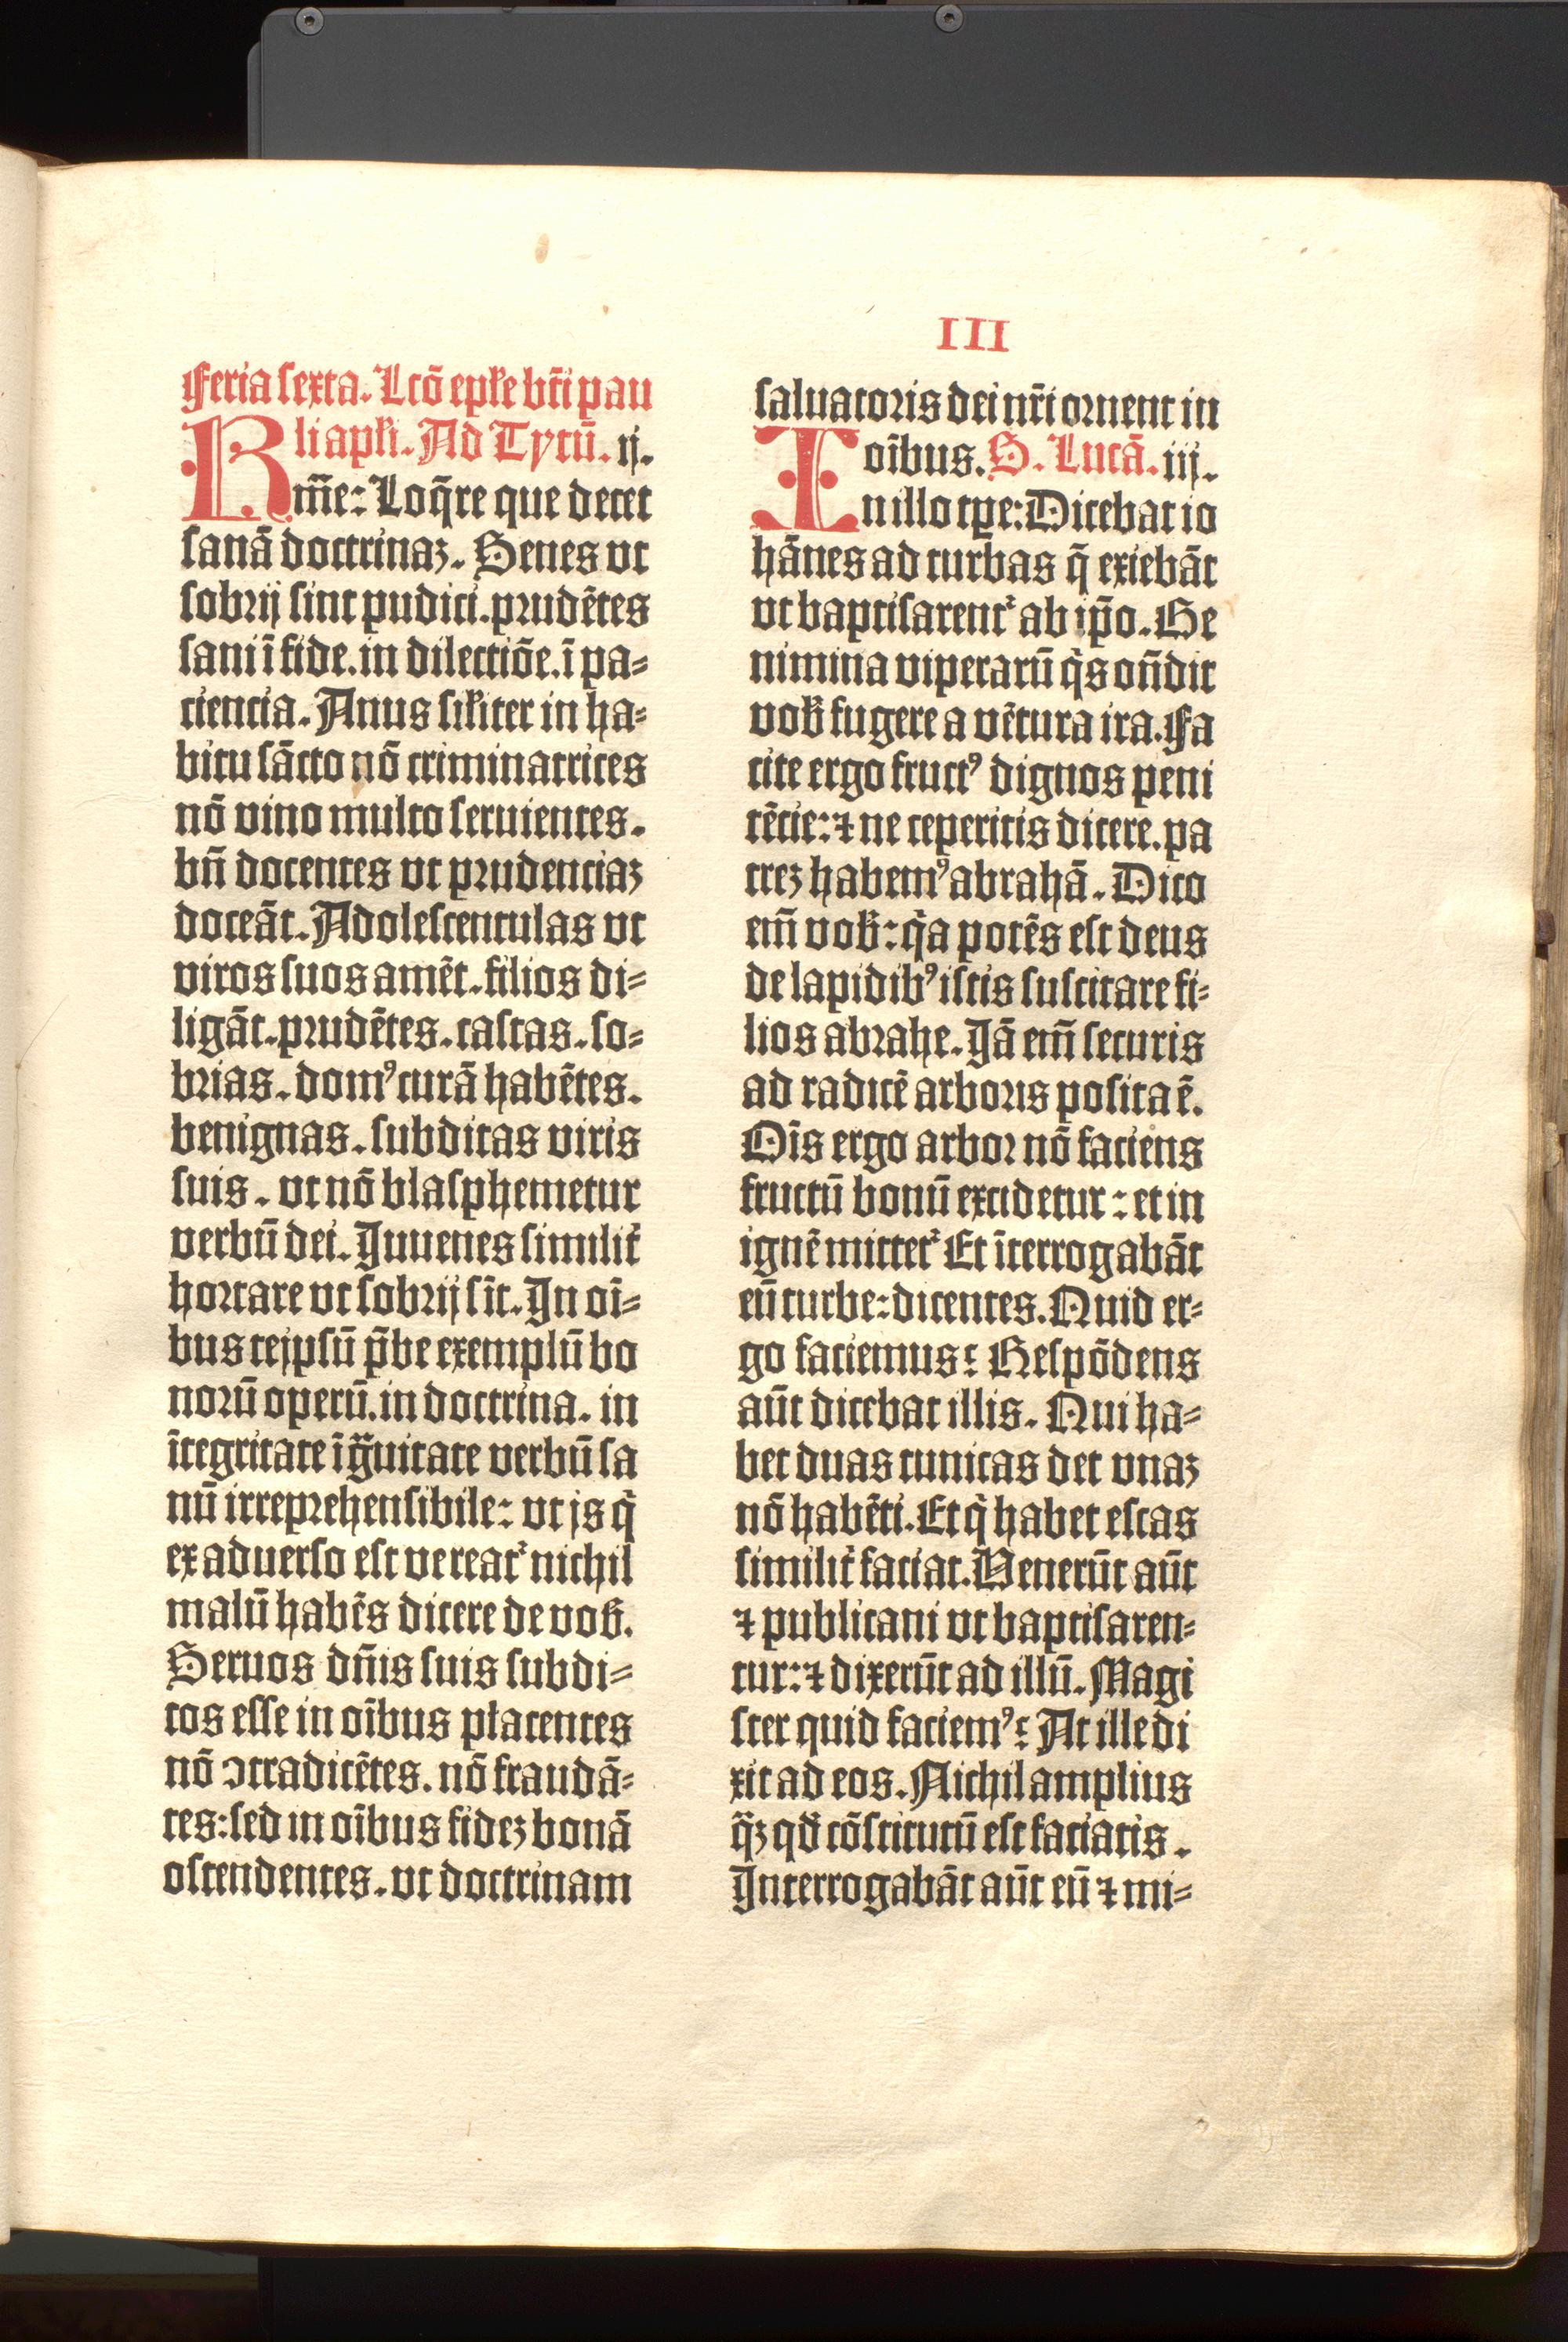 III
Feria sexta. Lcō epłe bt̄i pau
li apłi. Ad Tytū. ij.
Rm̄e: Loq̄re que decet
sanā doctrinaz. Senes vt
sobrij sint pudici. prudētes
sani ī fide. in dilectiōe. ī pa-
ciencia. Anus siłiter in ha-
bitu sācto nō criminatrices
nō vino multo seruientes.
bn̄ docentes vt prudenciaz
doceāt. Adolescentulas vt
viros suos amēt. filios di-
ligāt. prudētes. castas. so-
brias. domꝰ curā habētes.
benignas. subditas viris
suis. vt nō blasphemetur
verbū dei. Juuenes similit̄
hortare vt sobrij sīt. In oī-
bus tejpsū p̄be exemplū bo
norū operū. in doctrina. in
ītegritate ī gͣuitate verbū sa
nū irreprehensibile: vt js q̇
ex aduerso est vereatᷣ nichil
malū habēs dicere de vob̄.
Seruos dn̄is suis subdi-
tos esse in oībus placentes
nō ↄtradicētes. nō fraudā-
tes: sed in oībus fidez bonā
ostendentes. vt doctrinam
saluatoris dei nr̄i ornent in
oībus. S. Lucā. iij.
In illo tp̄e: Dicebat io
hānes ad turbas q̄ exiebāt
vt baptisarentᷣ ab ip̄o. Ge
nimina viperarū q̇s on̄dit
vob̄ fugere a vētura ira. Fa
cite ergo fructꝰ dignos peni
tēcie: ⁊ ne ceperitis dicere. pa
trez habemꝰ abrahā. Dico
em̄ vob̄: q̇a potēs est deus
de lapidibꝰ istis suscitare fi-
lios abrahe. Jā em̄ securis
ad radicē arboris posita ē.
Oīs ergo arbor nō faciens
fructū bonū excidetur: et in
ignē mittetᷣ Et īterrogabāt
eū turbe: dicentes. Quid er-
go faciemus? Respōdens
aūt dicebat illis. Qui ha-
bet duas tunicas det vnaz
nō habēti. Et q̇ habet escas
similit̄ faciat. Venerūt aūt
⁊ publicani vt baptisaren-
tur: ⁊ dixerūt ad illū. Magi
ster quid faciemꝰ? At ille di
xit ad eos. Nichil amplius
qͣ̄z qd̄ cōstitutū est faciatis.
Interrogabāt aūt eū ⁊ mi-